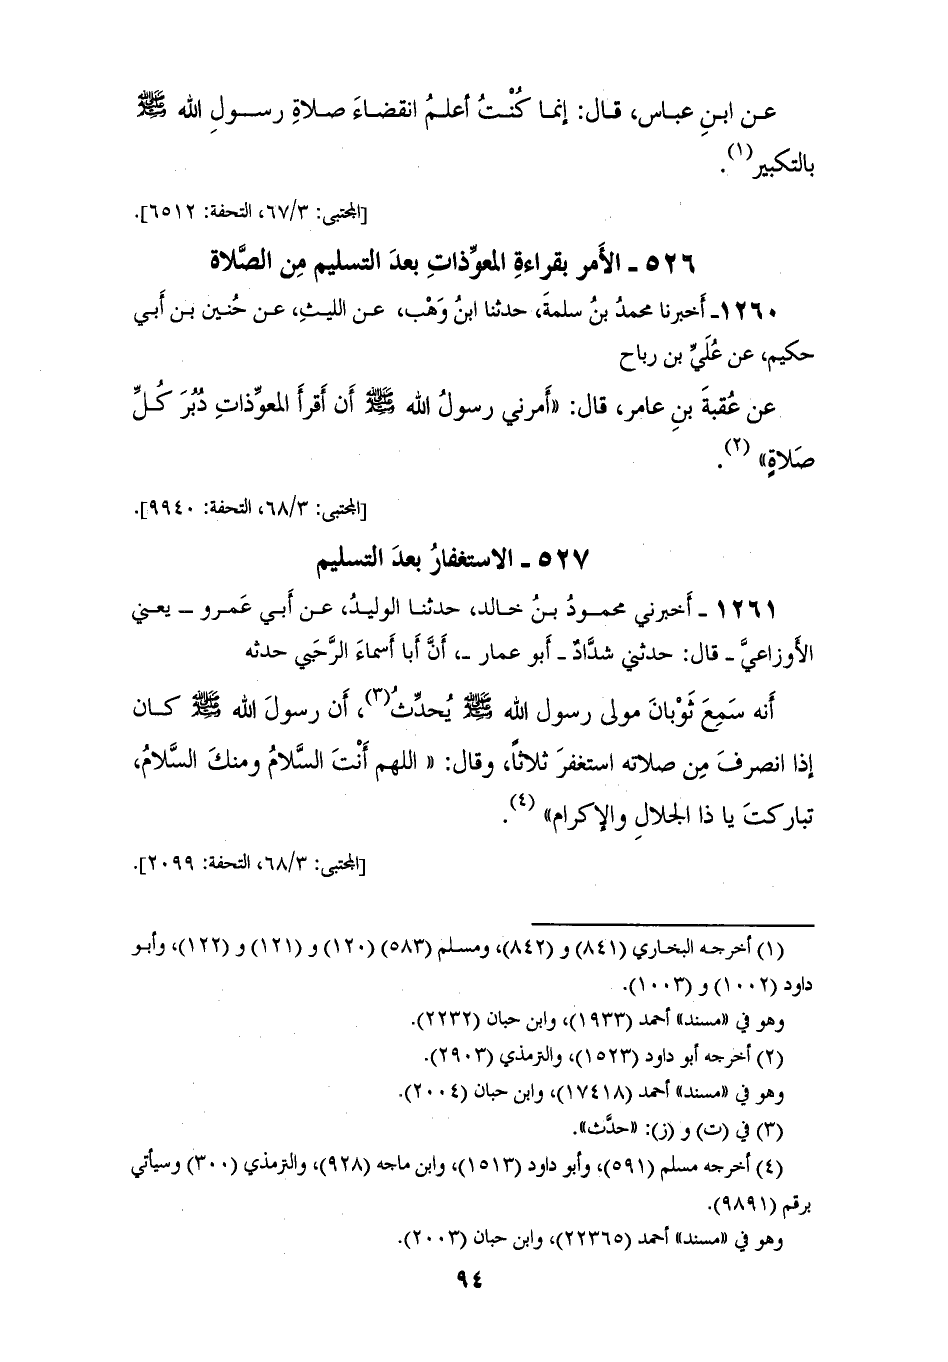 عـن ابـنِ عبـاس، قـال: إنمـا كُنْـتُ أعلـمُ انقضـاءَ صـلاةِ رسـولِ الله ﷺ
بالتكبير(١).
[المجتبى: ٦٧/٣، التحفة: ٦٥١٢].
٥٢٦ ـ الأَمر بقراءةِ المعوِّذاتِ بعدَ التسليم مِن الصَّلاة
١٢٦٠ـ أَخبرنا محمدُ بنُ سلمةَ، حدثنا ابنُ وَهْب، عـن الليـثِ، عـن حُنَين بـن أَبي
حكيم، عن عُلَيِّ بن رباح
عن عُقبةَ بنِ عامر، قال: «أَمرني رسولُ الله ﷺ أَن أَقرأَ المعوِّذاتِ دُبُرَ كُـلِّ
صَلاةٍ» (٢).
[المجتبى: ٦٨/٣، التحفة: ٩٩٤٠].
٥٢٧ ـ الاستغفارُ بعدَ التسليم
١٢٦١ ـ أَخبرني محمـودُ بـنُ خـالد، حدثنـا الوليـدُ، عـن أَبـي عَمـرو ـ يعـني
الأَوزاعيَّ ـ قال: حدثني شدَّادٌ ـ أَبو عمار ـ، أَنَّ أَبا أَسماءَ الرَّحَبي حدثه
أَنه سَمِعَ ثَوْبانَ مولى رسول الله ﷺ يُحدِّثُ(٣)، أَن رسولَ الله ﷺ كـان
إذا انصرفَ مِن صلاته استغفرَ ثلاثاً، وقال: « اللهم أَنْتَ السَّلامُ ومنكَ السَّلامُ،
تباركتَ يا ذا الجلالِ والإكرام» (٤).
[المجتبى: ٦٨/٣، التحفة: ٢٠٩٩].
(١) أخرجـه البخـاري (٨٤١) و (٨٤٢)، ومسلم (٥٨٣) (١٢٠) و (١٢١) و (١٢٢)، وأبـو
داود (١٠٠٢) و (١٠٠٣).
وهو في «مسند» أحمد (١٩٣٣)، وابن حبان (٢٢٣٢).
(٢) أخرجه أبو داود (١٥٢٣)، والترمذي (٢٩٠٣).
وهو في «مسند» أحمد (١٧٤١٨)، وابن حبان (٢٠٠٤).
(٣) في (ت) و (ز): «حدَّث».
(٤) أخرجه مسلم (٥٩١)، وأبو داود (١٥١٣)، وابن ماجه (٩٢٨)، والترمذي (٣٠٠) وسيأتي
برقم (٩٨٩١).
وهو في «مسند» أحمد (٢٢٣٦٥)، وابن حبان (٢٠٠٣).
٩٤